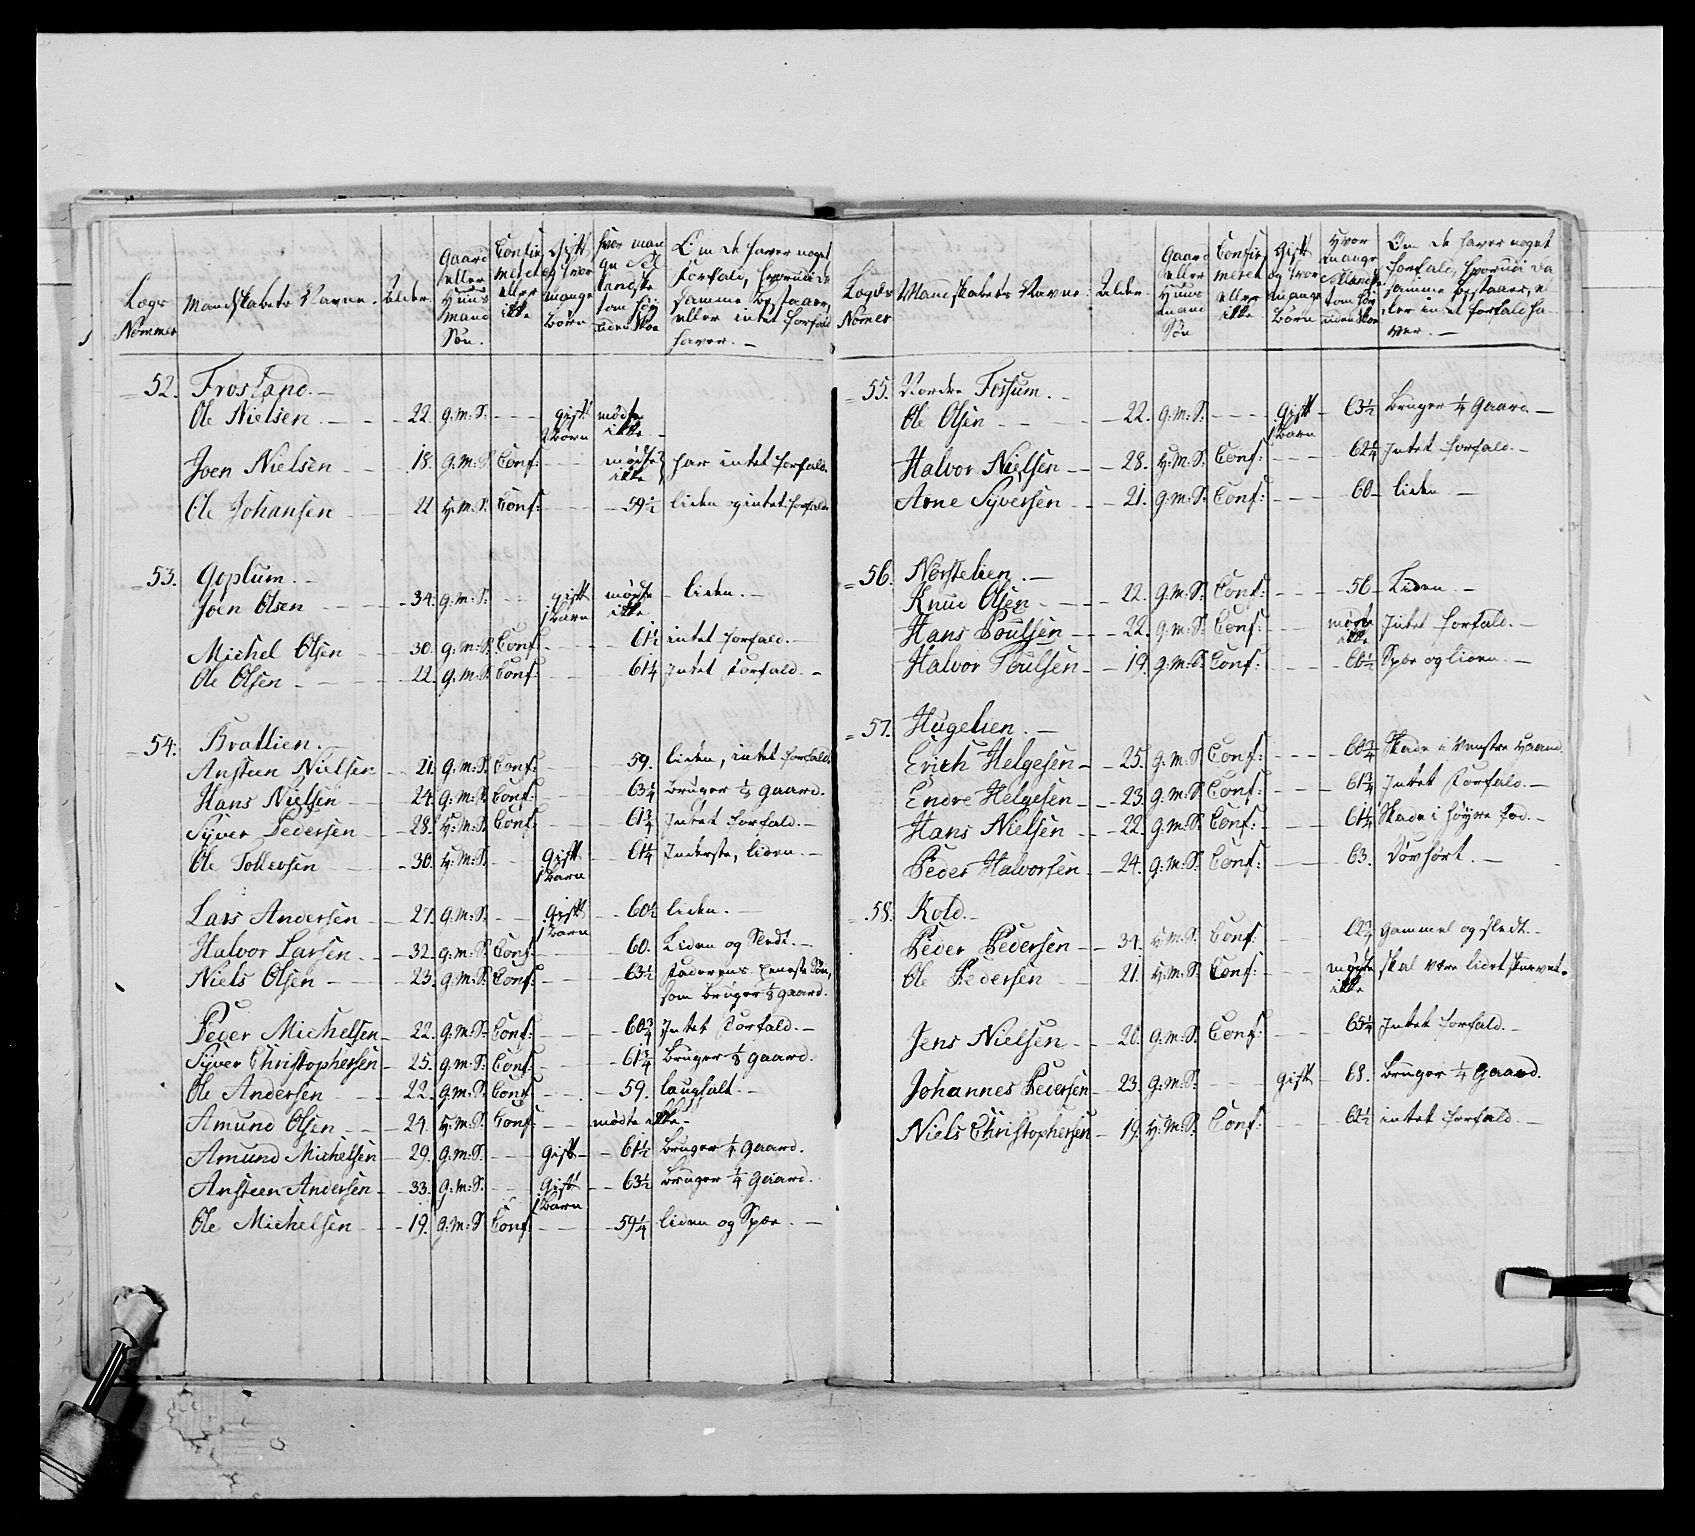 Lægs Nommer | Mandskabets Navne. | Alder. | Gaard eller Huus Mand Søn. | Confirmeret eller ikke | Gift og hvor mange Børn | hvor mange Sællandske tom høj uden Skoe | Om de haver noget forfald, hvorudi de samme bestaaer, eller intet forfald haver. –
52. Frøsland. –
Ole Nielsen – 22. g.m.S. – – – gift 2 børn mødte ikke –
Joen Nielsen – 18. g.m.S. Conf: – – mødte ikke har intet forfald.
Ole Johansen 22 H.m.S. Conf: – – 59½ liden og intet forfald.
53. Goplum. –
Joen Olsen – 34. g.m.S. – – gift 1 Barn mødte ikke – liden. –
Michel Olsen – 30. g.m.S. Conf. – – 61½ intet forfald. –
Ole Olsen – 22. g.m.S. Conf: – – 61¼ Intet forfald. –
54. Brattlien. –
Ansteen Nielsen – 21. g.m.S. Conf: – – 59. liden, intet forfald.
Hans Nielsen – 24. g.m.S. Conf: – – 63¼ bruger ¼ gaard.
Syver Pedersen – 28. H.m.S. Conf: – – 61¾ Intet forfald. –
Ole Tollersen – 30. H.m.S. – – gift 1 Barn – 61¼ Inderste, liden. –
Lars Andersen – 27. g.m.S. – – gift 1 Barn – 60½ liden. –
Halvor Larsen – 32. g.m.S. Conf. – – 60. Liden og Sledt. –
Niels Olsen – 23. g.m.S. Conf: – – 63½ Faderens Eeneste Søn,
som bruger ⅛ gaard.
Peder Michelsen – 22. g.m.S. Conf: – – 60¾ Intet forfald. –
Syver Christophersen – 25. g.m.S. Conf: – – 61¾ bruger ⅛ gaard.
Ole Andersen – 22. g.m.S. Conf: – – 59. laughalt. –
Amund Olsen – 24. H.m.S. Conf: – – mødte ikke –
Amund Michelsen – 29. g.m.S. – – gift – 61½ bruger ¼ gaard.
Ansteen Andersen – 33. g.m.S. – – gift 1 Barn – 63½ bruger ¼ gaard.
Ole Michelsen – 19. g.m.S. Conf: – – 59¼ liden og Spæe. –
Lægds Nomer | Mandskabets Navne | Alder. | Gaard eller Huus mand Søn | Confirmeret eller ikke | Gift og hvor mange Børn | Hvor mange Sællandske tom høj uden Skoe | Om de haver noget forfald, hvorudi da samme bestaaer, eller intet forfald haver. –
55. Nordre Forsum. –
Ole Olsen – – 22. g.m.S. – – – gift 1 Barn – 63½ bruger ¼ gaard –
Halvor Nielsen – 28. H.m.S. Conf: – – – 62¼ Intet forfald. –
Arne Syversen – 21. g.m.S. Conf: – – – 60 – liden –
56. Norstelien. –
Knud Olsen – 22. g.m.S. Conf: – – – 56 – Liden –
Hans Poulsen – 22. g.m.S. Conf: – – mødte ikke Intet forfald. –
Halvor Poulsen – 19. g.m.S. Conf: – – – 60½ Spæe og liden. –
57. Hugelien. –
Erich Helgesen – 25. g.m.S. Conf: – – – 60¾ Skade i Venstre Haand.
Endre Helgesen – 23. g.m.S. Conf: – – – 61¾ Intet forfald. –
Hans Nielsen – 22. g.m.S. Conf: – – – 61¼ Skade i høyre Fod. –
Peder Halvorsen – 24. g.m.S. Conf: – – 63. Døvhørt. –
58. Kold –
Peder Pedersen – 34. H.m.S. Conf: – – 62¾ gammel og sledt. –
Ole Pedersen – 21. H.m.S. Conf: – – mødte ikke skal være lidet skurvet.
Jens Nielsen – 20. g.m.S. Conf: – – 65¼ Intet forfald. –
Johannes Pedersen – 23. g.m.S. – – gift – 68. Bruger ¼ gaard.
Niels Christophersen – 19. H.m.S. Conf: – – 62½ intet forfald. –